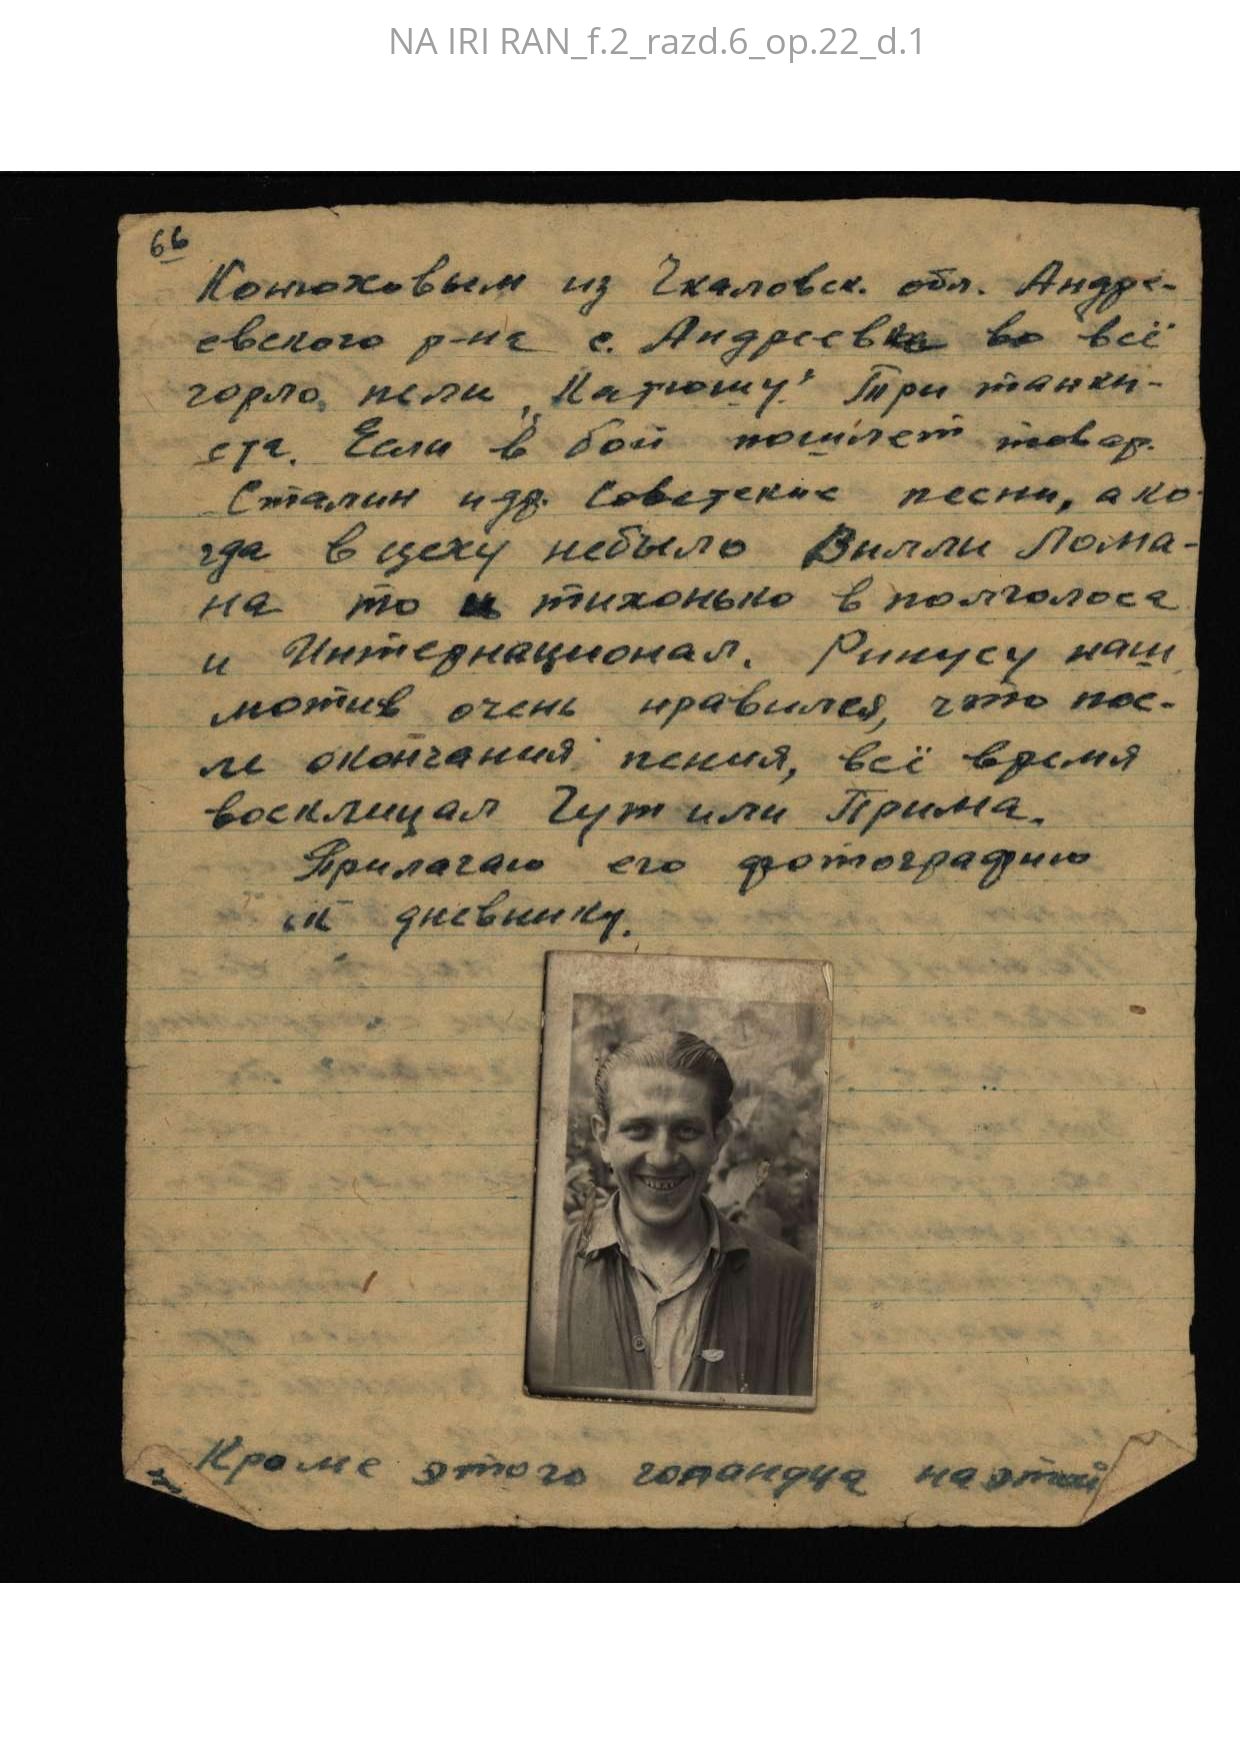 NA IRI RAN_f.2_razd.6_op.22_d.1
66
Конюховым из Чкаловск. обл. Андре-
евского р-на с. Андреевка во всё
горло пели „Катюшу" Три танки-
ста. Если в бой пошлет товар.
Сталин и др. Советские песни, а ко-
гда в цеху небыло Вилли Лома-
на то и тихонько в полголоса
и Интернационал. Ринусу наш
мотив очень нравился, что пос-
ле окончания пения, всё время
восклицал Гут или Прима.
Прилагаю его фотографию
к дневнику.
Кроме этого голандца на этой